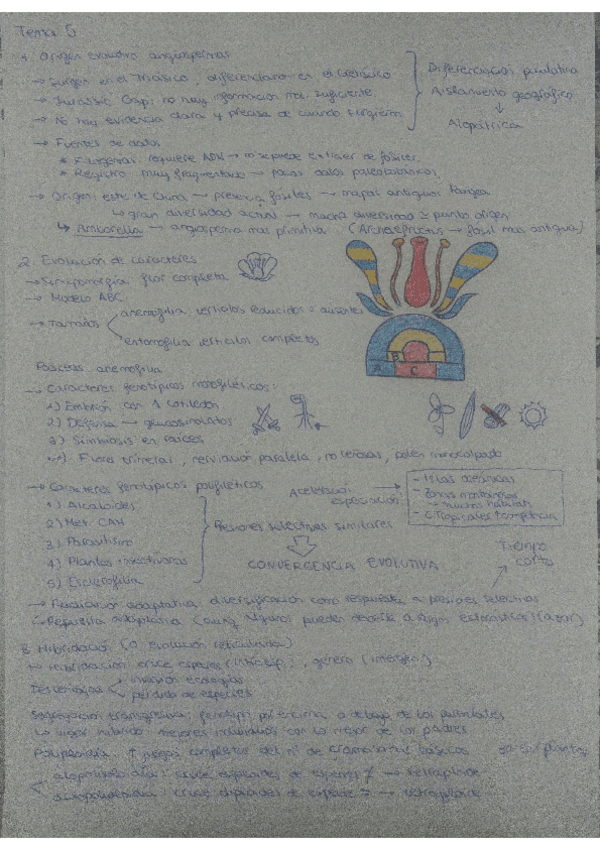 Tema 5
1. Origen evolutivo angiospermas
→ Surgen en el Triásico, diferenciaron en el Cretácico
→ Jurassic Gap: no hay información más suficiente
→ No hay evidencia clara y precisa de cuándo surgieron
Diferenciación paulatina
Aislamiento geográfico
↓
Alopátrica
→ Fuentes de datos
* Filogenias: requiere ADN → no se puede extraer de fósiles
* Registro muy fragmentado → pocos datos paleobotánicos
→ Origen: este de China → presencia fósiles → mapas antiguos Pangea
↳ gran diversidad actual → mucha diversidad ≃ punto origen
↳ Amborella → angiosperma más primitiva (Archaefructus → fósil más antiguo)
2. Evolución de caracteres
→ Sinapomorfía: flor completa
→ Modelo ABC
→ Tamaños
anemofilia: verticilos reducidos o ausentes
entomofilia verticilos completos
B
A C
Poáceas anemofilia
→ Caracteres fenotípicos monofiléticos:
1) Embrión con 1 cotiledón
2) Defensa → glucosinolatos
3) Simbiosis en raíces
Flores trímeras, nerviación paralela, no leñosas, polen monocolpado
→ Caracteres fenotípicos polifiléticos
1) Alcaloides
2) Met. CAM
3) Parasitismo
4) Plantas insectívoras
5) Esclerofilia
Presiones selectivas similares
CONVERGENCIA EVOLUTIVA
Aceleración especiación:
- Islas oceánicas
- Zonas montañosas
→ nuevos hábitats
- C. Tropicales ↑ competencia
Tiempo corto
→ Radiación adaptativa: diversificación como respuesta a presiones selectivas
↳ Respuesta adaptativa (aunq. algunos pueden deberse a algún estocástico) (azar)
3. Hibridación (o evolución reticulada)
→ Hibridación: cruce especies (interesp.), género (interg.)
Desventajas
invasión ecológica
pérdida de especies
Segregación transgresiva: fenotipo por encima o debajo de los parentales
Vigor híbrido: mejores individuos con lo mejor de los padres
Poliploidía: ↑ juegos completos del nº de cromosomas básicos plantas
alopoliploidía: cruce diploides de especies ≠ → tetraploide
autopoliploidía: cruce diploides de especie = → tetraploide